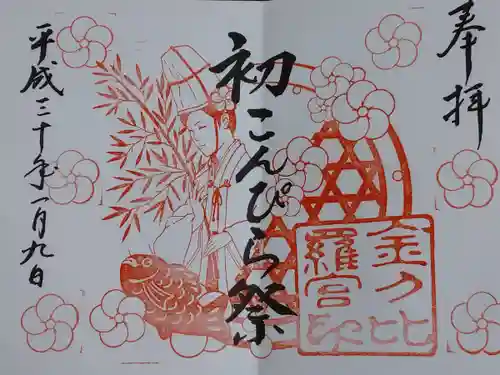 奉拝
初こんぴら祭
平成三十年一月九日
金刀比
羅宮印